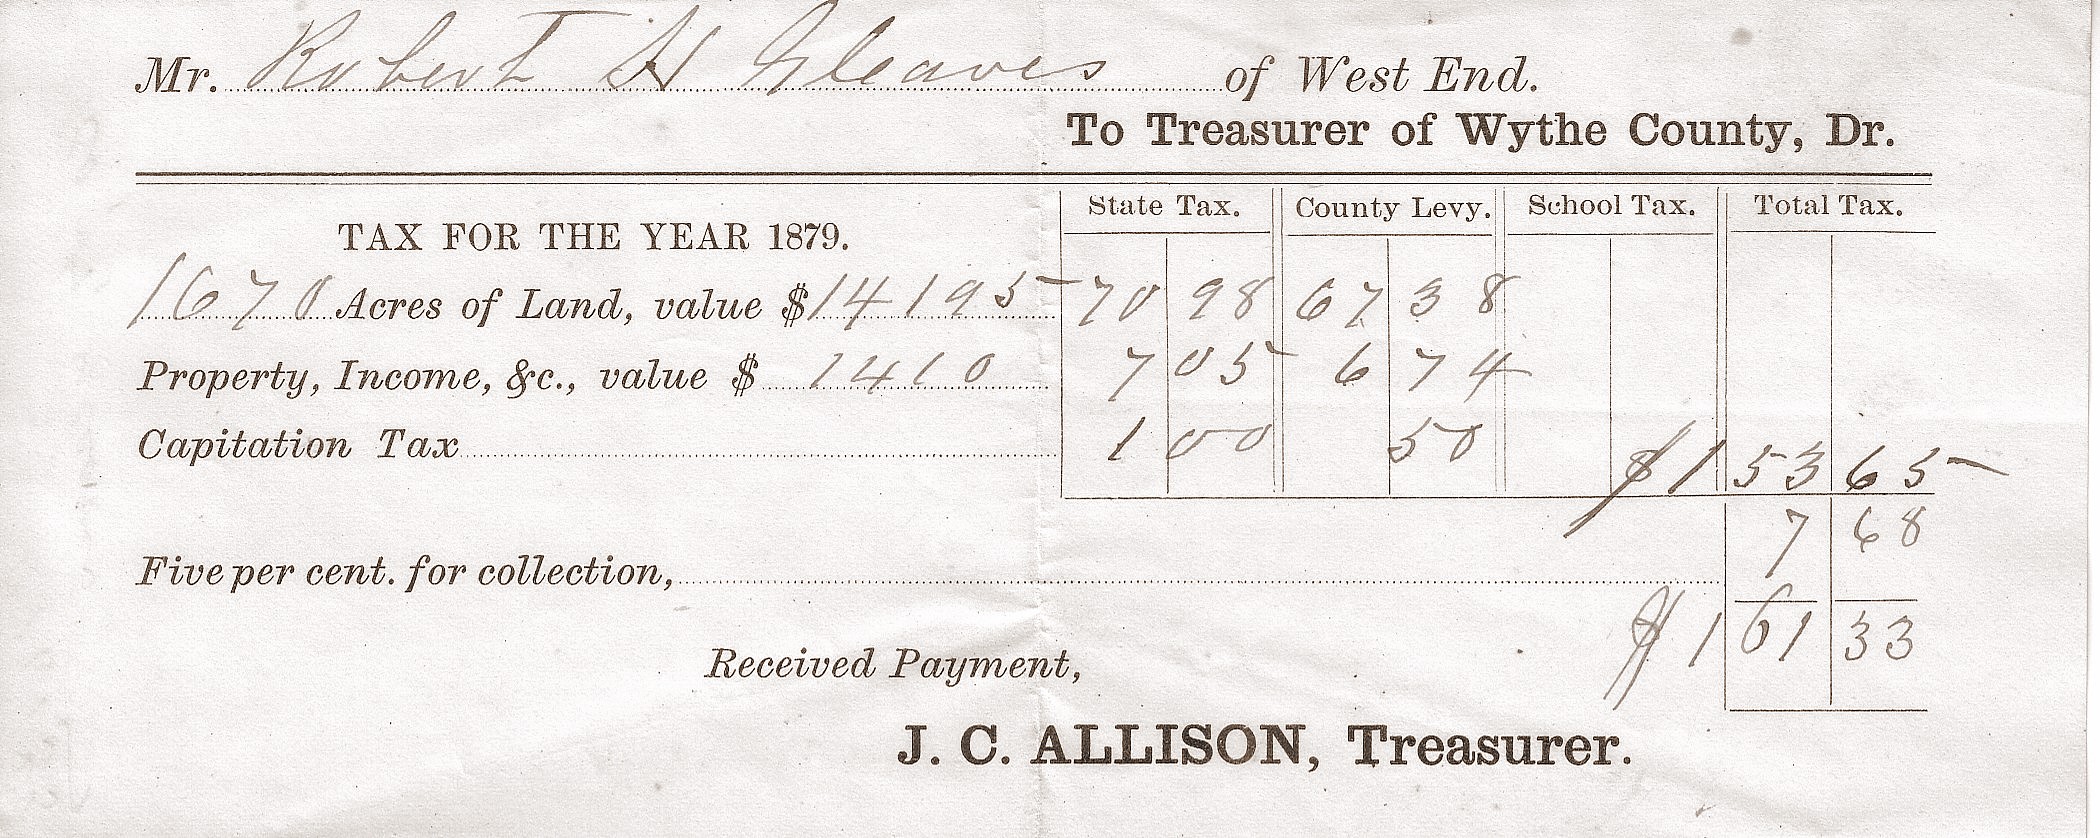 Mr. Robert H Gleaves of West End.
To Treasurer of Wythe County, Dr.
TAX FOR THE YEAR 1879. State Tax. County Levy. School Tax. Total Tax.
1670 Acres of Land, value $14195 70 98 67 38
Property, Income, &c., value $ 1410 7 05 6 74
Capitation Tax 1 00 50 $153 65
7 68
Five per cent. for collection,
$161 33
Received Payment,
J. C. ALLISON, Treasurer.